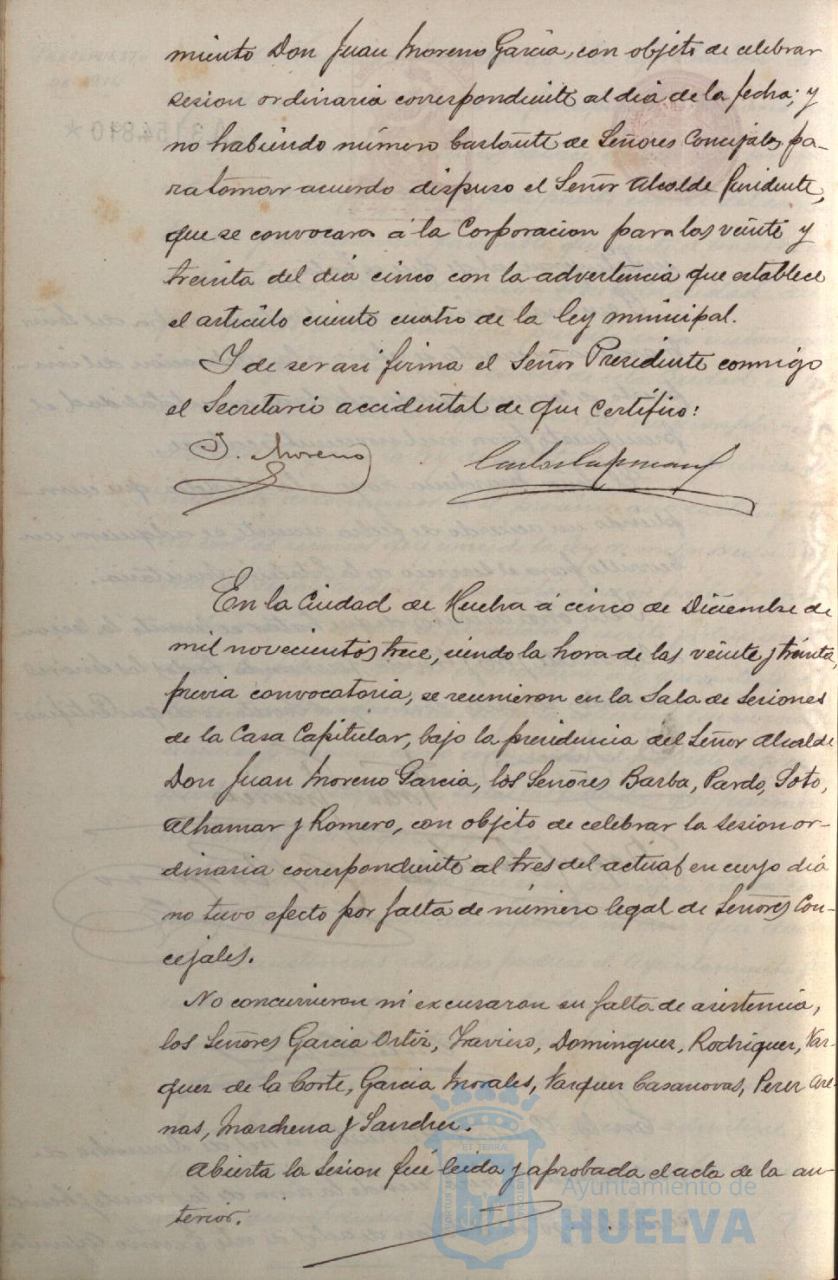 miento Don Juan Moreno Garcia, con objeto de celebrar
sesion ordinaria correspondiente al dia de la fecha; y
no habiendo número bastante de Señores Concejales pa-
ra tomar acuerdo dispuso el Señor Alcalde Presidente,
que se convocara á la Corporacion para las veinte y
treinta del dia cinco con la advertencia que establece
el artículo ciento cuatro de la ley municipal.
Y de ser asi firma el Señor Presidente conmigo
el Secretario accidental de que certifico:
J. Moreno
En la Ciudad de Huelva á cinco de Diciembre de
mil novecientos trece, siendo la hora de las veinte y treinta,
previa convocatoria, se reunieron en la Sala de Sesiones
de la Casa Capitular, bajo la presidencia del Señor Alcalde
Don Juan Moreno Garcia, los Señores Barba, Pardo, Soto,
Alhamar y Romero, con objeto de celebrar la sesion or-
dinaria correspondiente al tres del actual en cuyo dia
no tuvo efecto por falta de número legal de Señores Con-
cejales.
No concurrieron ni excusaron su falta de asistencia,
los Señores Garcia Ortiz, Travieso, Dominguez, Rodriguez, Vaz-
quez de la Corte, Garcia Morales, Vazquez Casanovas, Perez Are-
nas, Marchena y Sanchez.
Abierta la Sesion fué leida y aprobada el acta de la an-
terior.
Ayuntamiento de
HUELVA